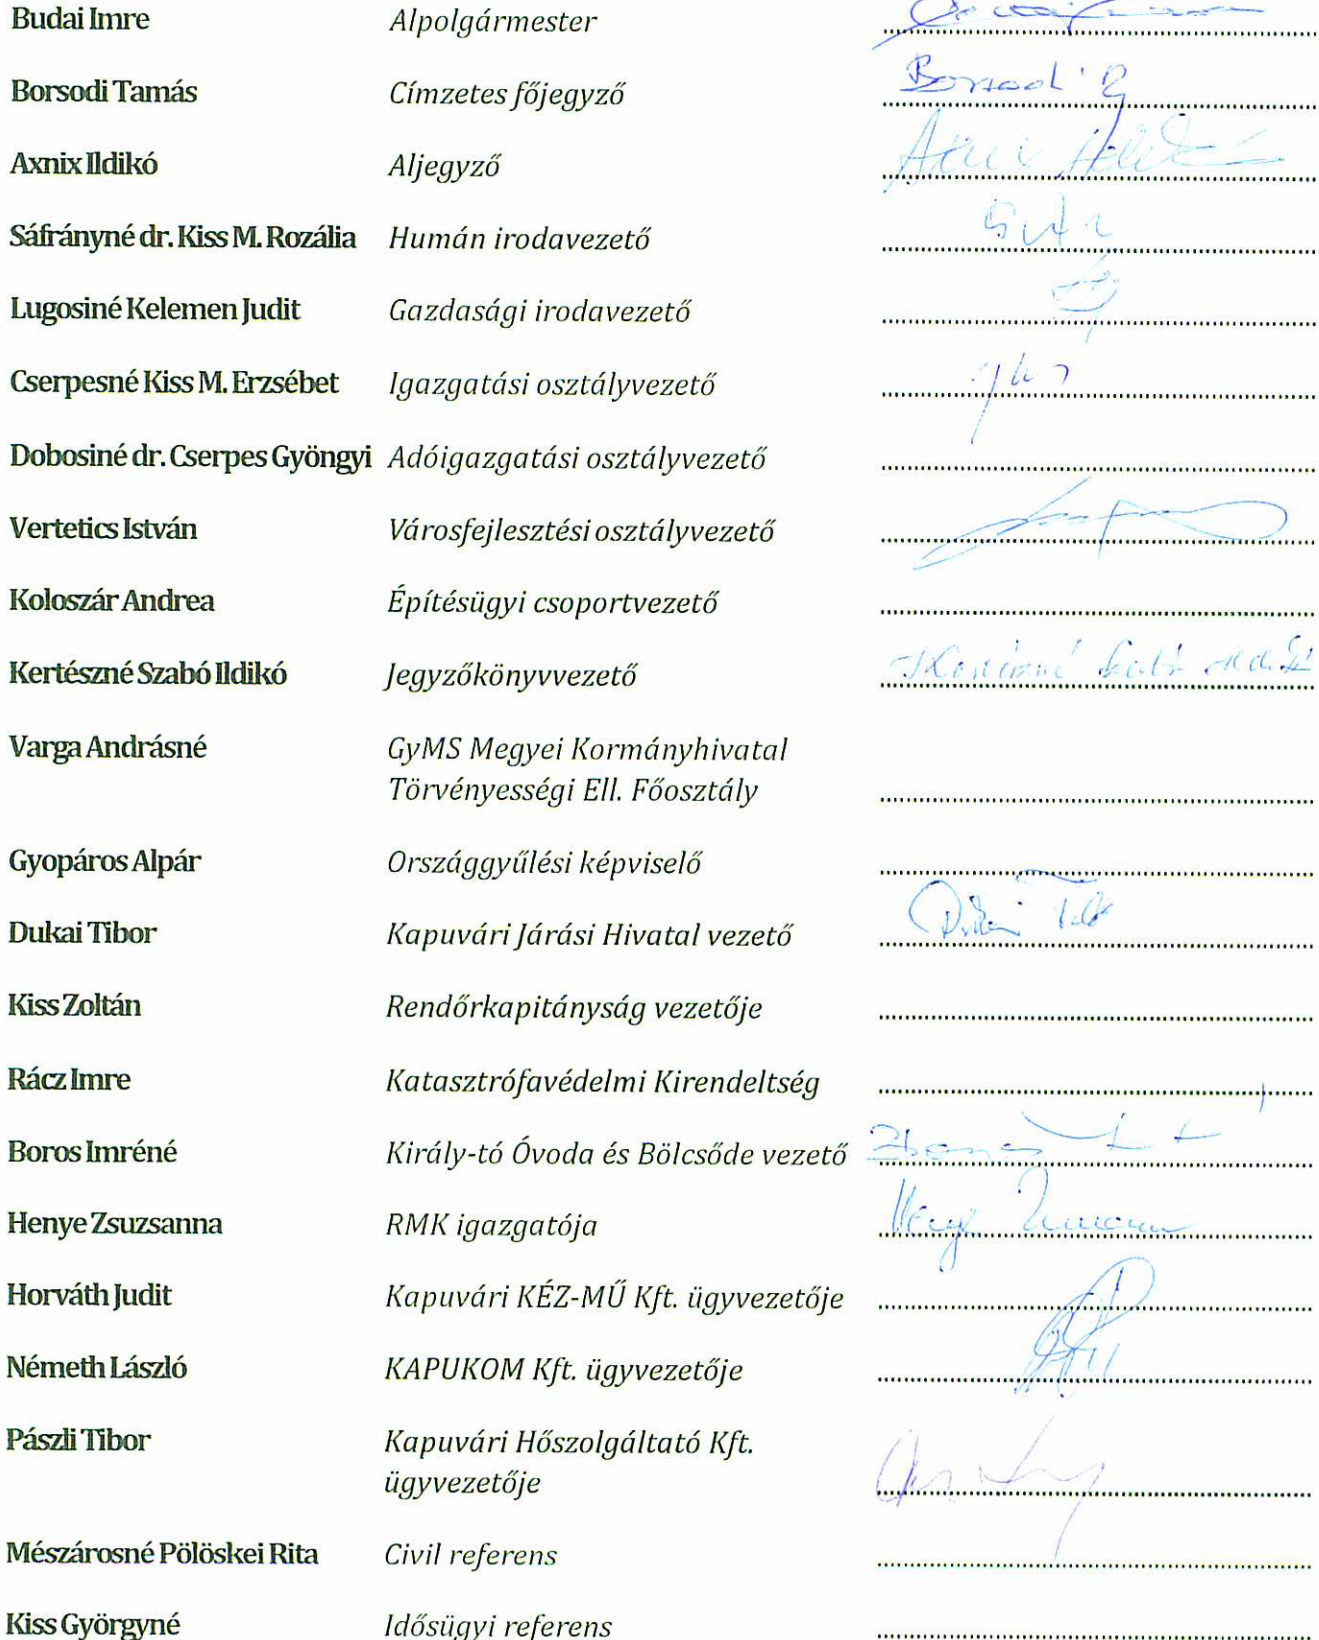 Budai Imre Alpolgármester
Borsodi Tamás Címzetes főjegyző Borsodi
Axnix Ildikó Aljegyző Axnix Ildikó
Sáfrányné dr. Kiss M. Rozália Humán irodavezető
Lugosiné Kelemen Judit Gazdasági irodavezető
Cserpesné Kiss M. Erzsébet Igazgatási osztályvezető
Dobosiné dr. Cserpes Gyöngyi Adóigazgatási osztályvezető
Vertetics István Városfejlesztési osztályvezető
Koloszár Andrea Építésügyi csoportvezető
Kertészné Szabó Ildikó Jegyzőkönyvvezető Kertészné Szabó Ildikó
Varga Andrásné GyMS Megyei Kormányhivatal
Törvényességi Ell. Főosztály
Gyopáros Alpár Országgyűlési képviselő
Dukai Tibor Kapuvári Járási Hivatal vezető Dukai Tibor
Kiss Zoltán Rendőrkapitányság vezetője
Rácz Imre Katasztrófavédelmi Kirendeltség
Boros Imréné Király-tó Óvoda és Bölcsőde vezető
Henye Zsuzsanna RMK igazgatója Henye Zsuzsanna
Horváth Judit Kapuvári KÉZ-MŰ Kft. ügyvezetője
Németh László KAPUKOM Kft. ügyvezetője
Pászli Tibor Kapuvári Hőszolgáltató Kft.
ügyvezetője
Mészárosné Pölöskei Rita Civil referens
Kiss Györgyné Idősügyi referens